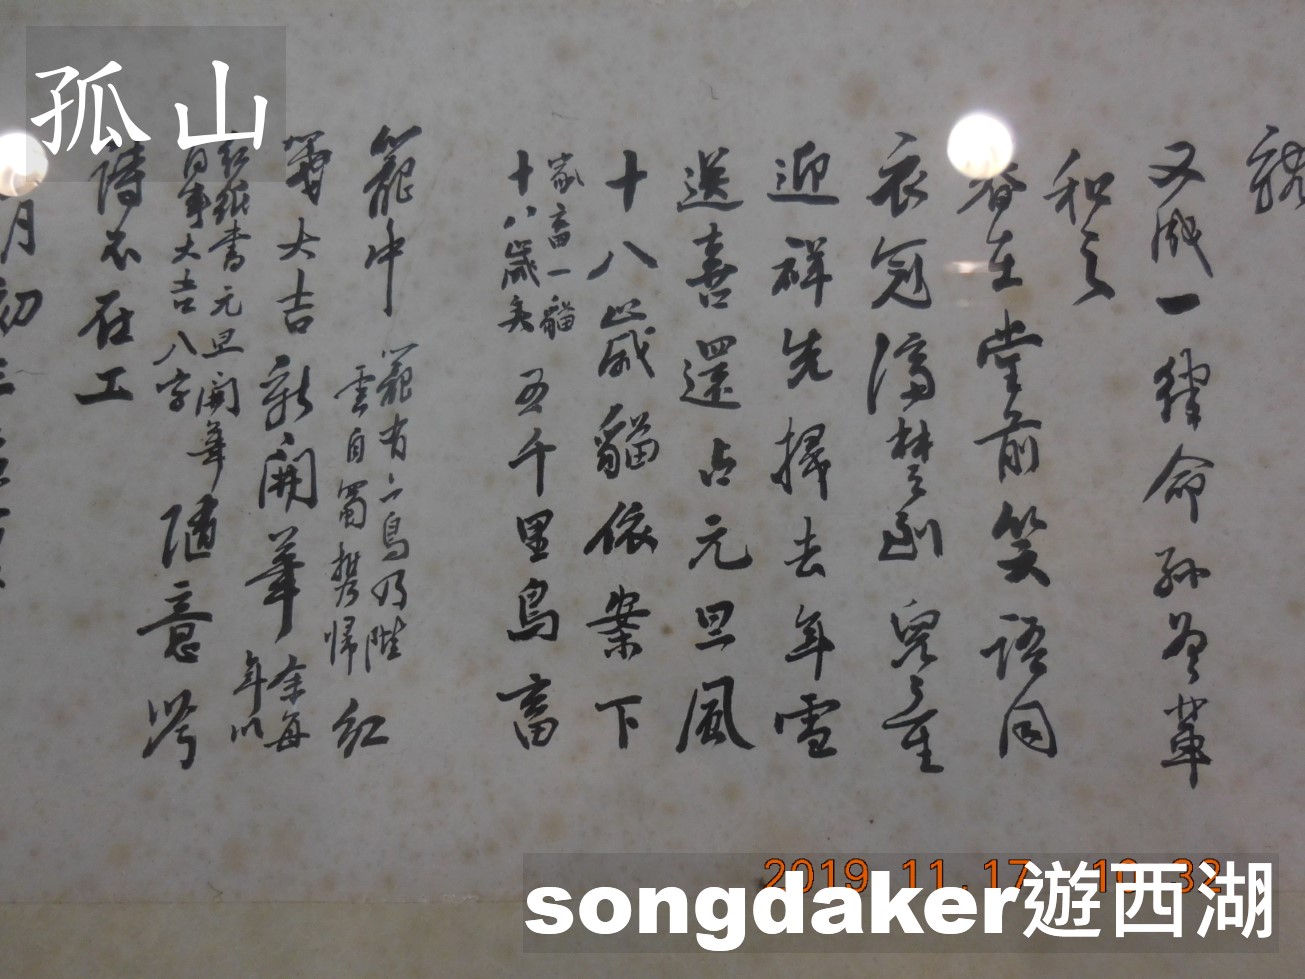 孤山
又成一律命孫曾輩
和之
春在堂前笑語同
衣冠濟楚到兒童
迎祥先掃去年雪
送喜還占元旦風
十八歲貓依案下
家畜一貓
十八歲矣
五千里鳥畜
籠中
籠有二鳥乃陛
雲自蜀攜歸
紅
箋大吉新開筆
余每
年以
紅紙書元旦開筆
百事大吉八字
隨意吟
詩不在工
月初三
2019.11.17 10:32
songdaker遊西湖